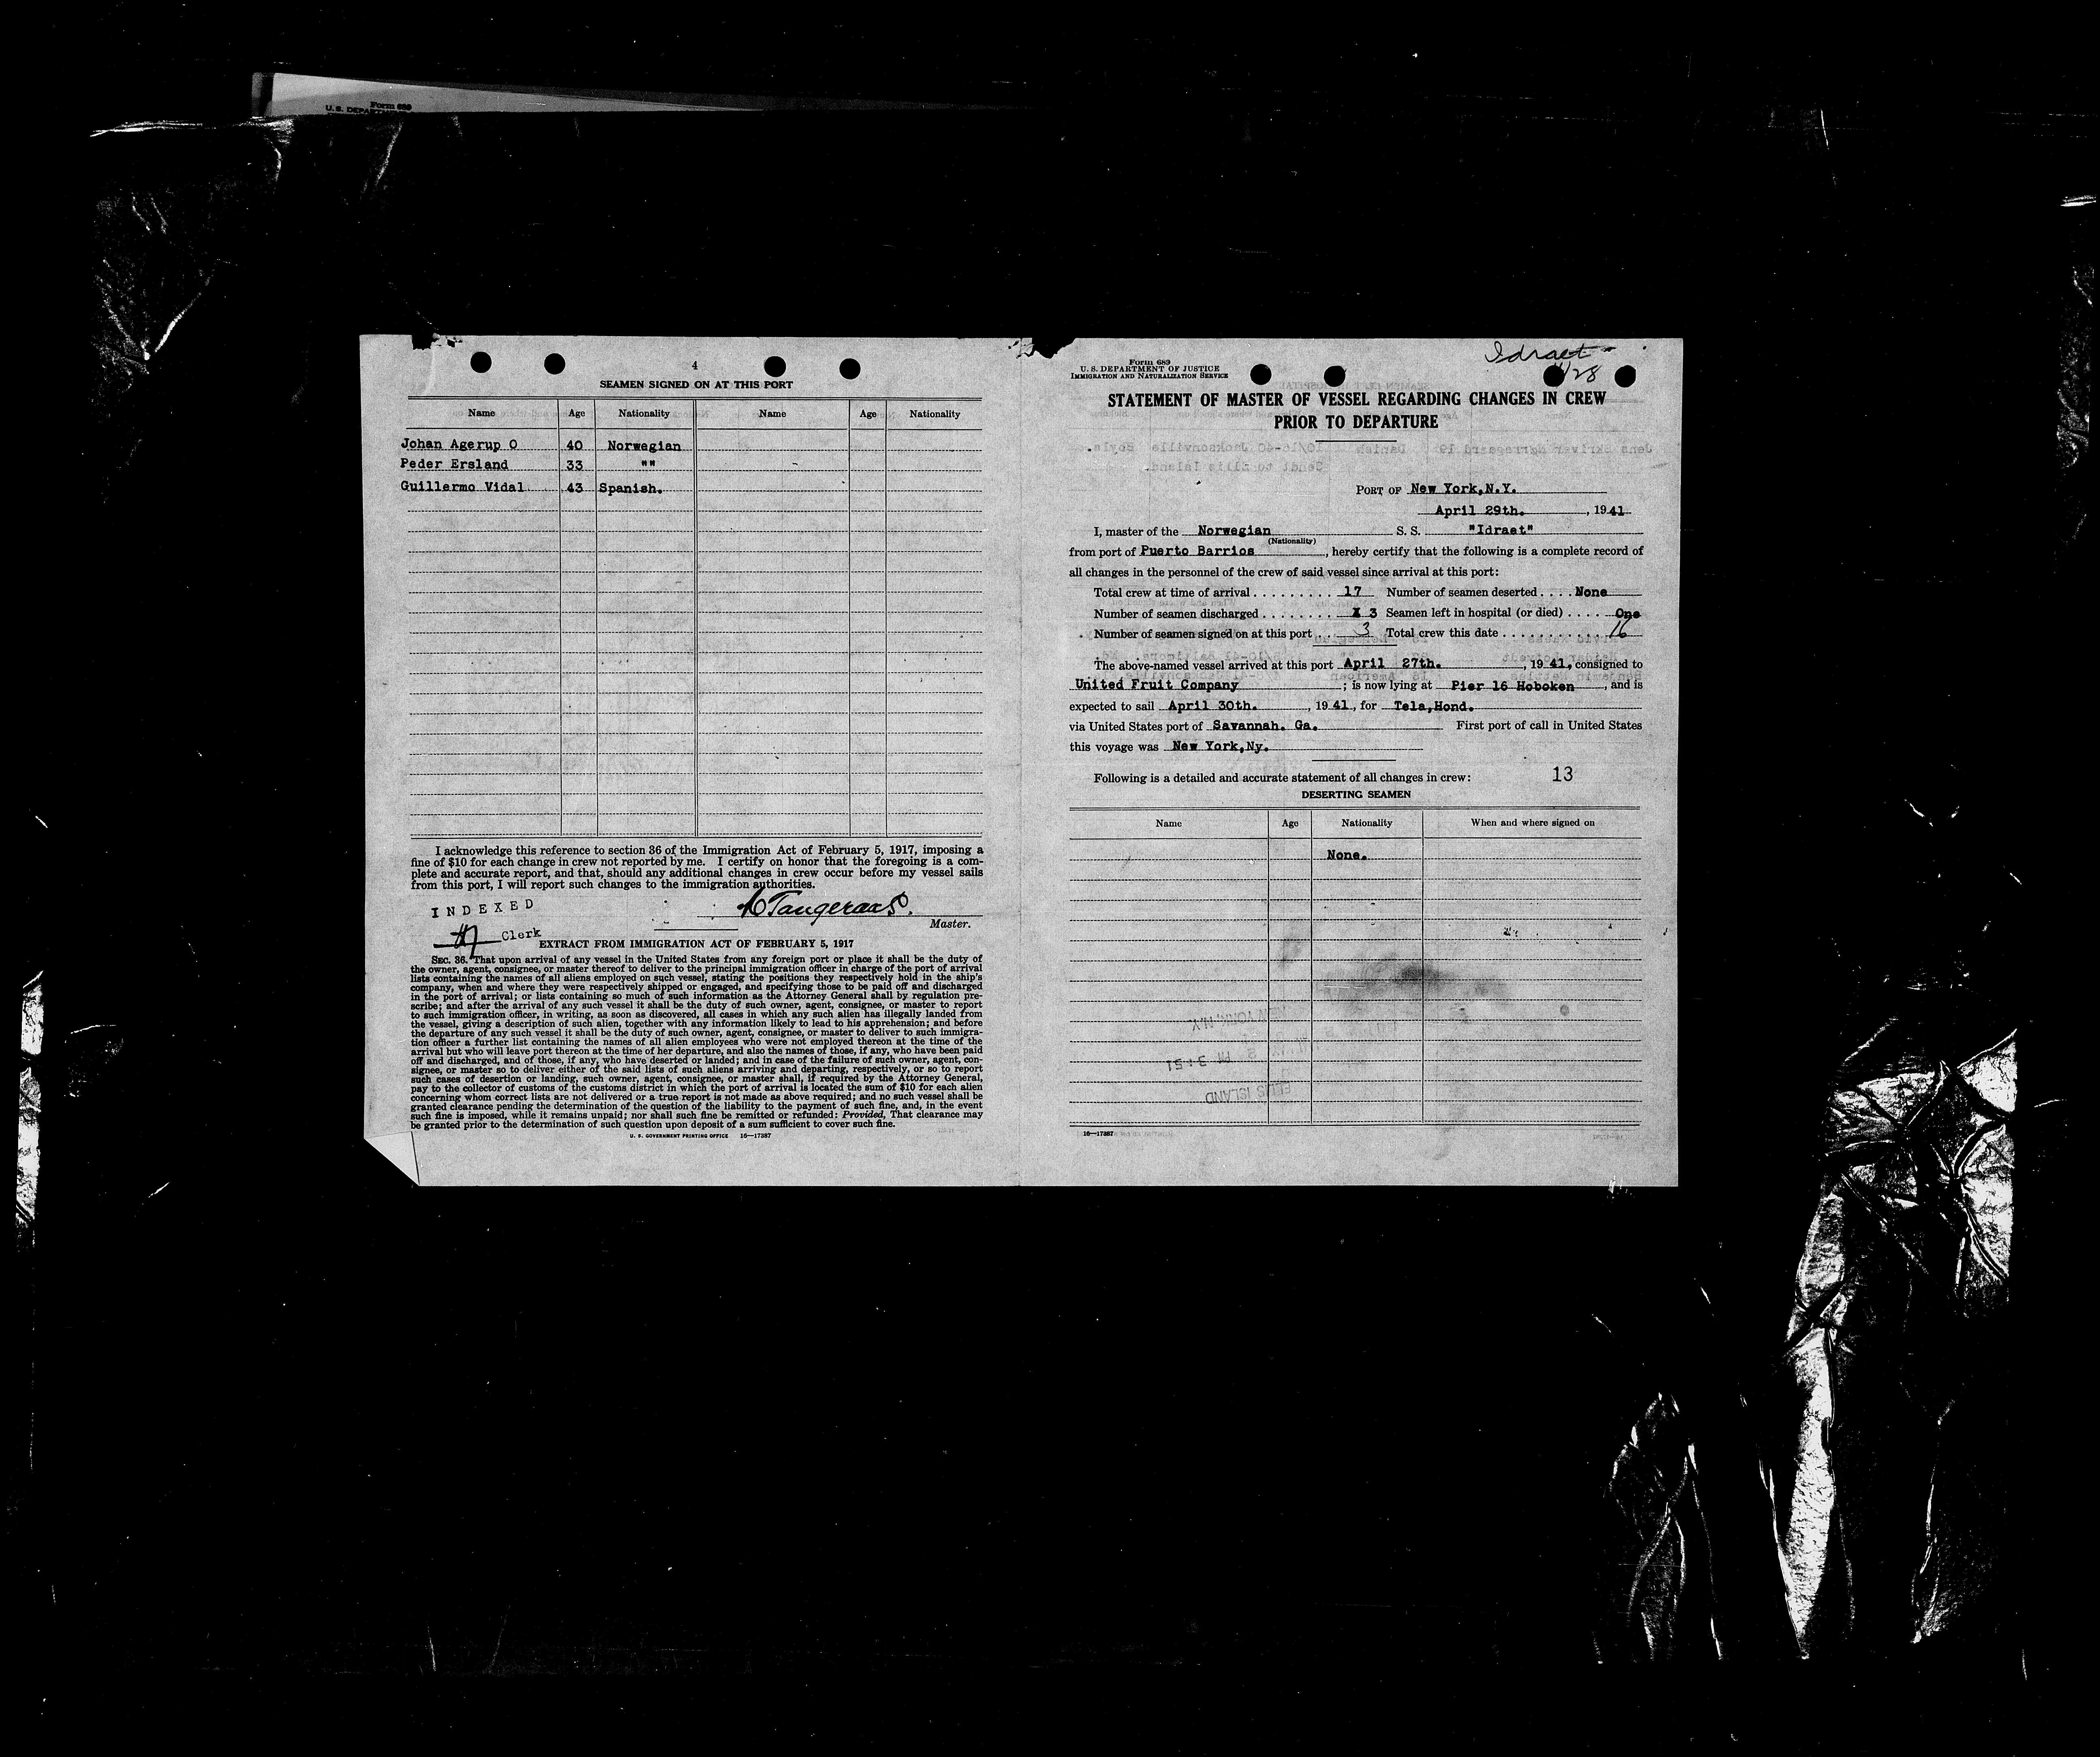 Form 689
U. S. DEPARTMENT
4
SEAMEN SIGNED ON AT THIS PORT
Name Age Nationality Name Age Nationality
Johan Agerup O 40 Norwegian
Peder Ersland 33 ""
Guillermo Vidal 43 Spanish.
I acknowledge this reference to section 36 of the Immigration Act of February 5, 1917, imposing a
fine of $10 for each change in crew not reported by me. I certify on honor that the foregoing is a com-
plete and accurate report, and that, should any additional changes in crew occur before my vessel sails
from this port, I will report such changes to the immigration authorities.
INDEXED
Master.
Clerk
EXTRACT FROM IMMIGRATION ACT OF FEBRUARY 5, 1917
SEC. 36. That upon arrival of any vessel in the United States from any foreign port or place it shall be the duty of
the owner, agent, consignee, or master thereof to deliver to the principal immigration officer in charge of the port of arrival
lists containing the names of all aliens employed on such vessel, stating the positions they respectively hold in the ship's
company, when and where they were respectively shipped or engaged, and specifying those to be paid off and discharged
in the port of arrival; or lists containing so much of such information as the Attorney General shall by regulation pre-
scribe; and after the arrival of any such vessel it shall be the duty of such owner, agent, consignee, or master to report
to such immigration officer, in writing, as soon as discovered, all cases in which any such alien has illegally landed from
the vessel, giving a description of such alien, together with any information likely to lead to his apprehension; and before
the departure of any such vessel it shall be the duty of such owner, agent, consignee, or master to deliver to such immigra-
tion officer a further list containing the names of all alien employees who were not employed thereon at the time of the
arrival but who will leave port thereon at the time of her departure, and also the names of those, if any, who have been paid
off and discharged, and of those, if any, who have deserted or landed; and in case of the failure of such owner, agent, con-
signee, or master so to deliver either of the said lists of such aliens arriving and departing, respectively, or so to report
such cases of desertion or landing, such owner, agent, consignee, or master shall, if required by the Attorney General,
pay to the collector of customs of the customs district in which the port of arrival is located the sum of $10 for each alien
concerning whom correct lists are not delivered or a true report is not made as above required; and no such vessel shall be
granted clearance pending the determination of the question of the liability to the payment of such fine, and, in the event
such fine is imposed, while it remains unpaid; nor shall such fine be remitted or refunded: Provided, That clearance may
be granted prior to the determination of such question upon deposit of a sum sufficient to cover such fine.
U. S. GOVERNMENT PRINTING OFFICE 16—17387
Form 689
U. S. DEPARTMENT OF JUSTICE
IMMIGRATION AND NATURALIZATION SERVICE
Idraet
4/28
STATEMENT OF MASTER OF VESSEL REGARDING CHANGES IN CREW
PRIOR TO DEPARTURE
PORT OF New York,N.Y.
April 29th. , 1941
I, master of the Norwegian S. S. "Idraet"
(Nationality)
from port of Puerto Barrios , hereby certify that the following is a complete record of
all changes in the personnel of the crew of said vessel since arrival at this port:
Total crew at time of arrival . . . . . . . . . 17 Number of seamen deserted . . . . None
Number of seamen discharged . . . . . . . . X 3 Seamen left in hospital (or died) . . . . . One
Number of seamen signed on at this port . . 3 Total crew this date . . . . . . . . . . . . 16
The above-named vessel arrived at this port April 27th. , 19 41, consigned to
United Fruit Company ; is now lying at Pier 16 Hoboken , and is
expected to sail April 30th. , 19 41 , for Tela,Hond.
via United States port of Savannah. Ga. First port of call in United States
this voyage was New York,Ny.
Following is a detailed and accurate statement of all changes in crew: 13
DESERTING SEAMEN
Name Age Nationality When and where signed on
None.
16—17387